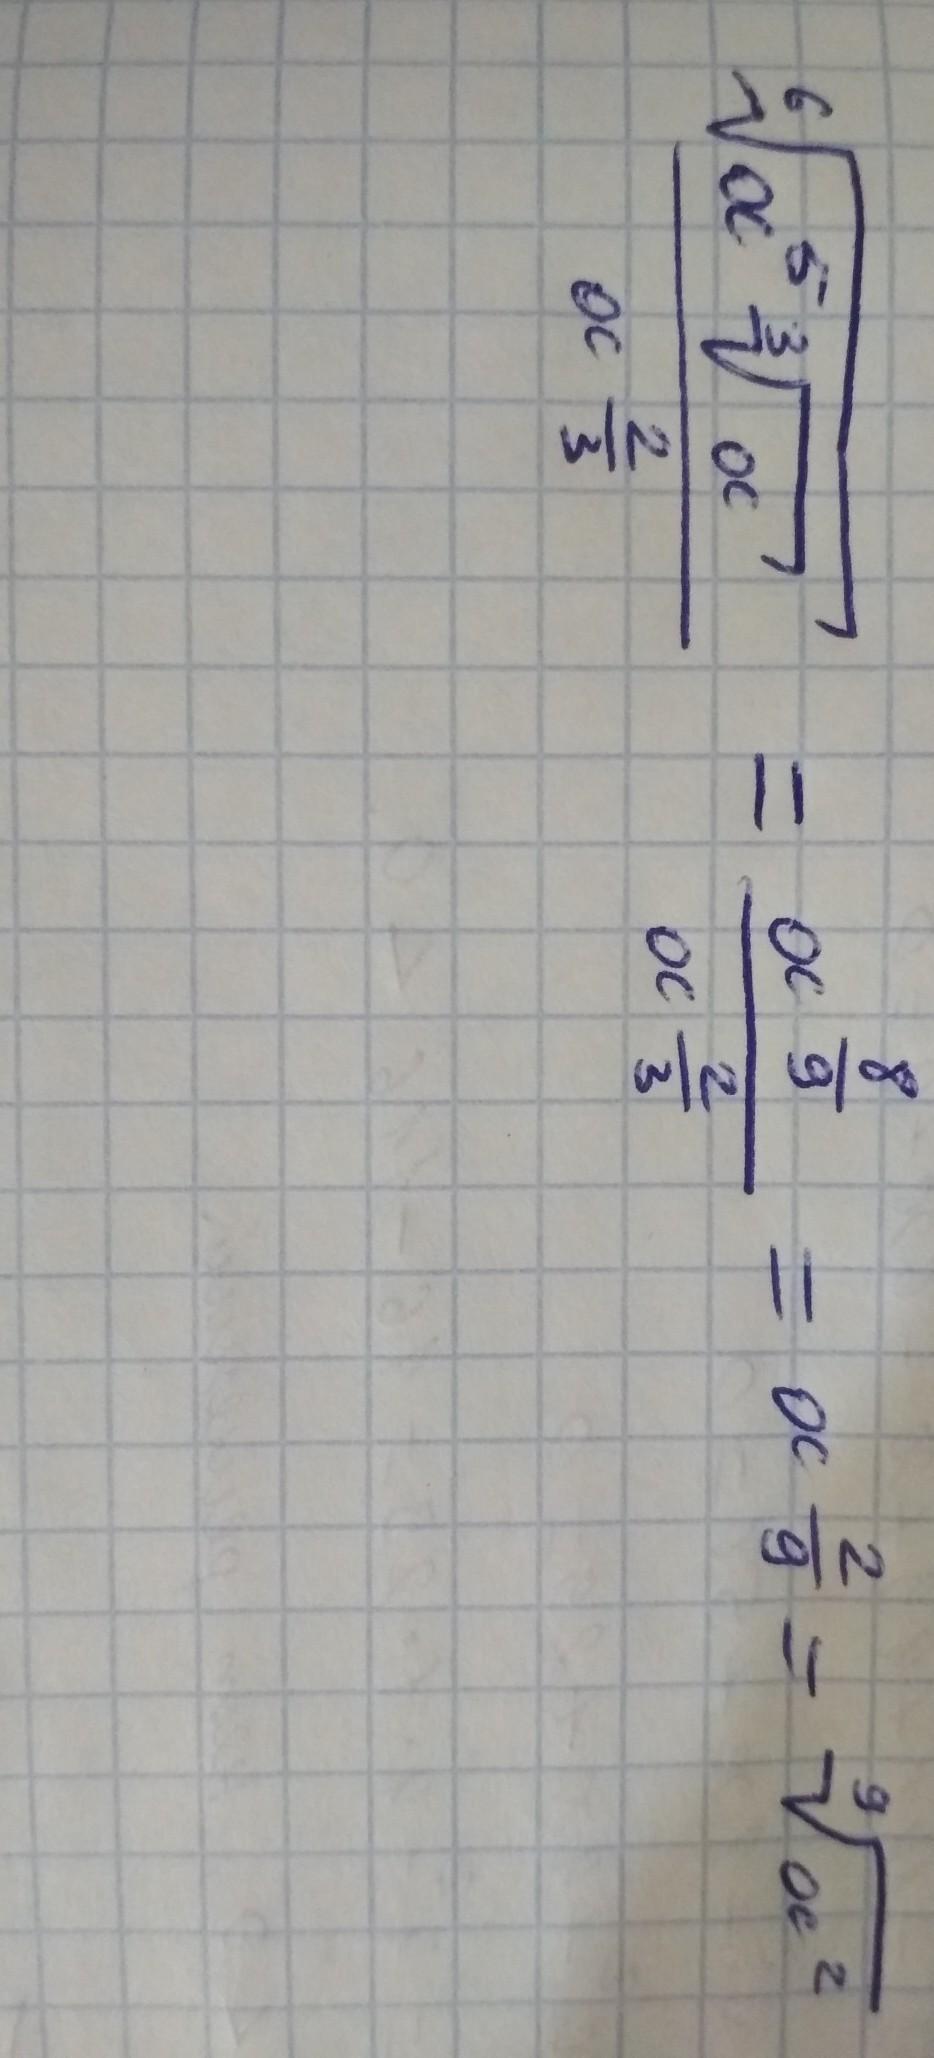 ⁶√(x⁵ ³√x) / x^(2/3) = x^(8/9) / x^(2/3) = x^(2/9) = ⁹√(x²)